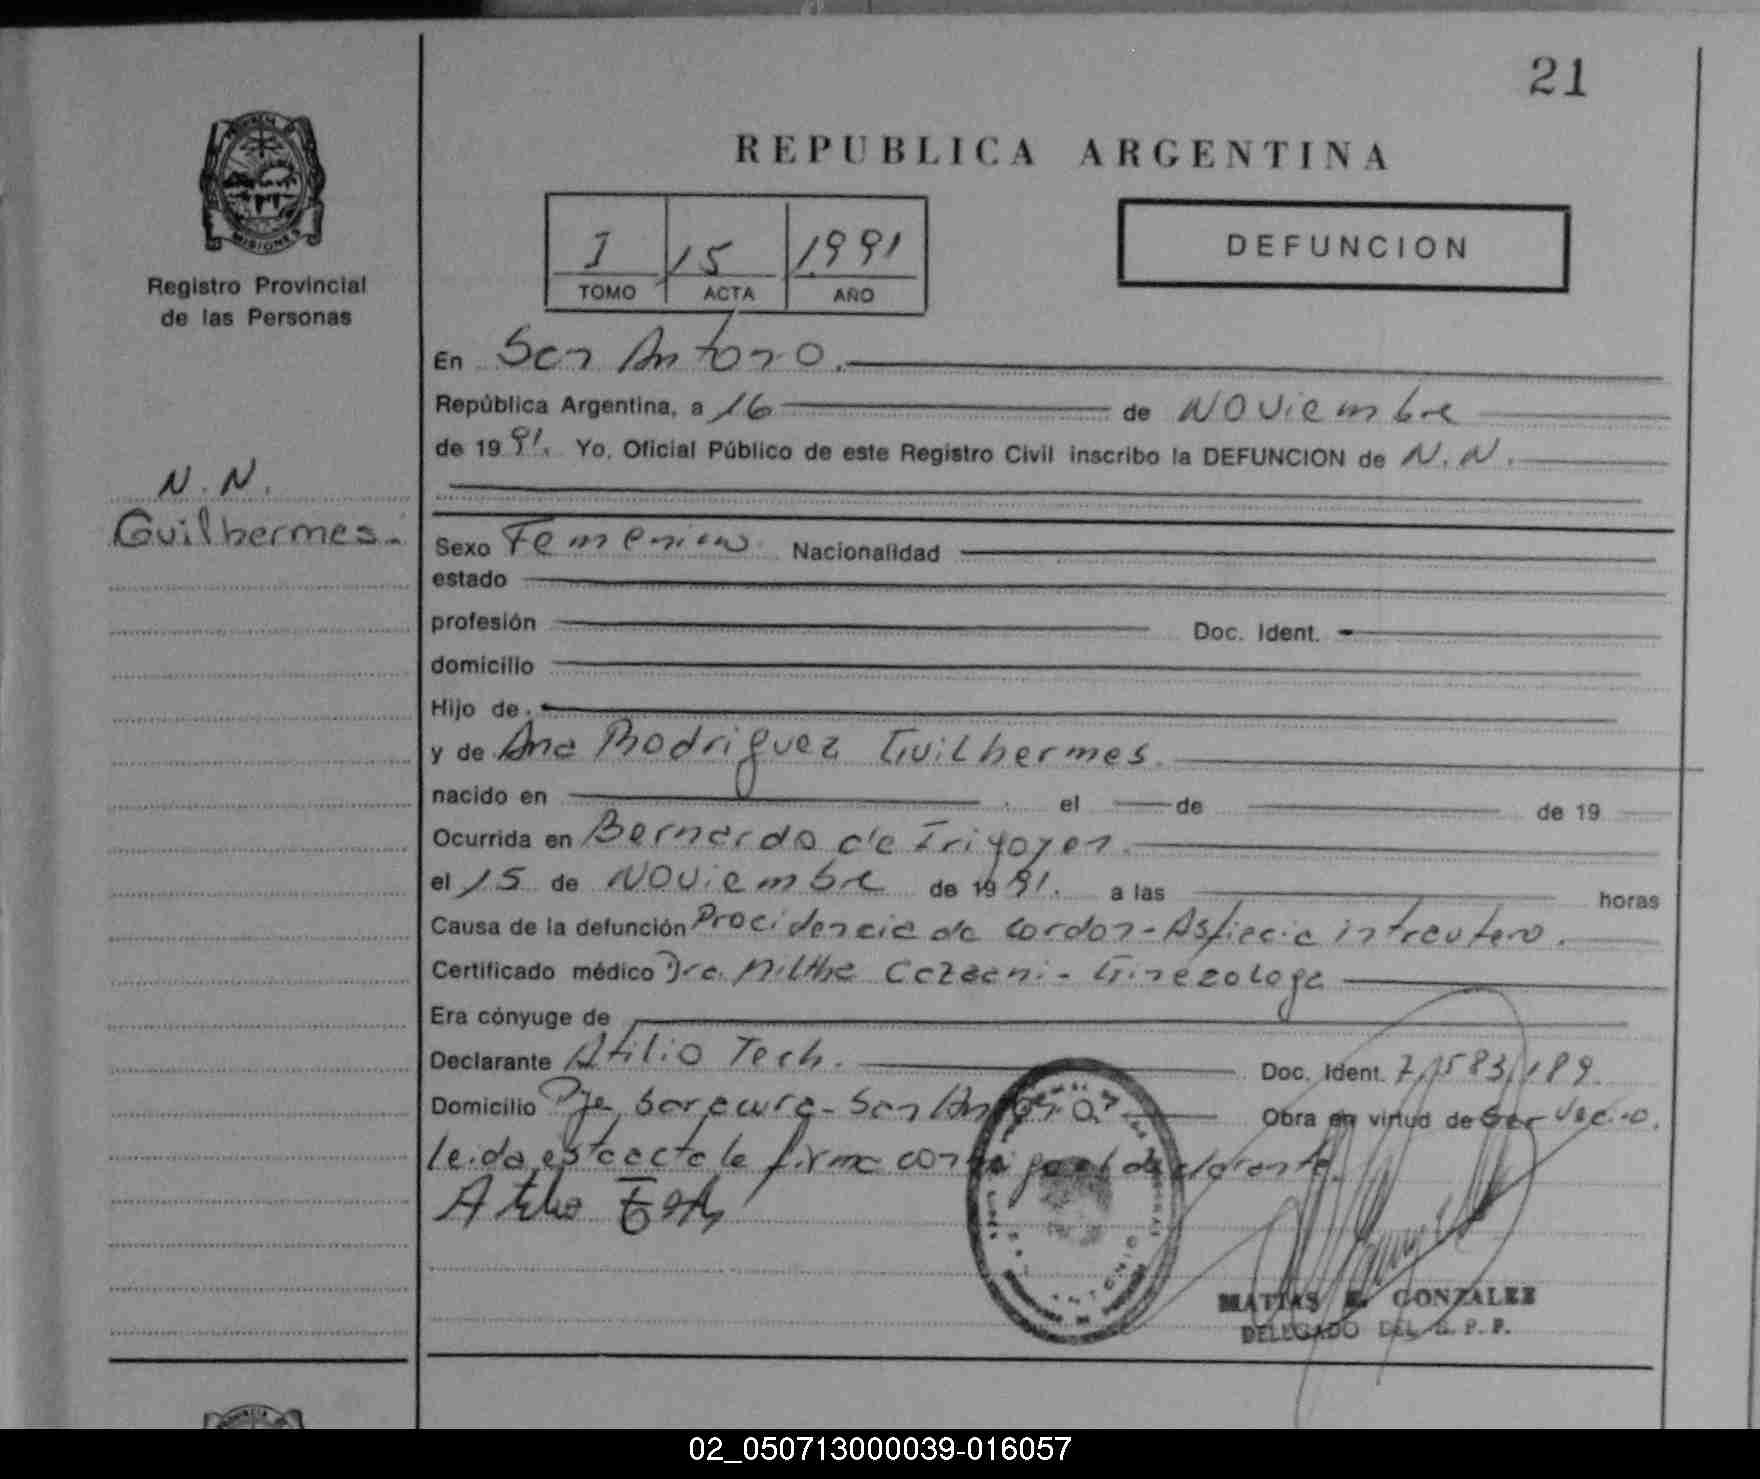 21
REPUBLICA ARGENTINA
PROVINCIA DE
MISIONES
Registro Provincial
de las Personas
I 15 1991
TOMO ACTA AÑO
DEFUNCION
En San Antonio.
República Argentina, a 16 de Noviembre
de 1991. Yo, Oficial Público de este Registro Civil inscribo la DEFUNCION de N.N.
N.N.
Guilhermes.
Sexo Femenino Nacionalidad
estado
profesión Doc. Ident.
domicilio
Hijo de
y de Ana Rodriguez Guilhermes.
nacido en el de de 19
Ocurrida en Bernardo de Irigoyen.
el 15 de Noviembre de 1991. a las horas
Causa de la defunción Procidencia de cordon - Asficcia intreutero.
Certificado médico Dra. Miltha - Ginecologa
Era cónyuge de
Declarante Atilio Tech. Doc. Ident. 7.583.189.
Domicilio Pje - San Antonio. Obra en virtud de Ser Vecino.
leida esta acta la firma conmigo el declarante.
Atilio
ANTONIO
MATIAS E. GONZALEZ
DELEGADO DEL R.P.P.
PROVINCIA DE
02_050713000039-016057